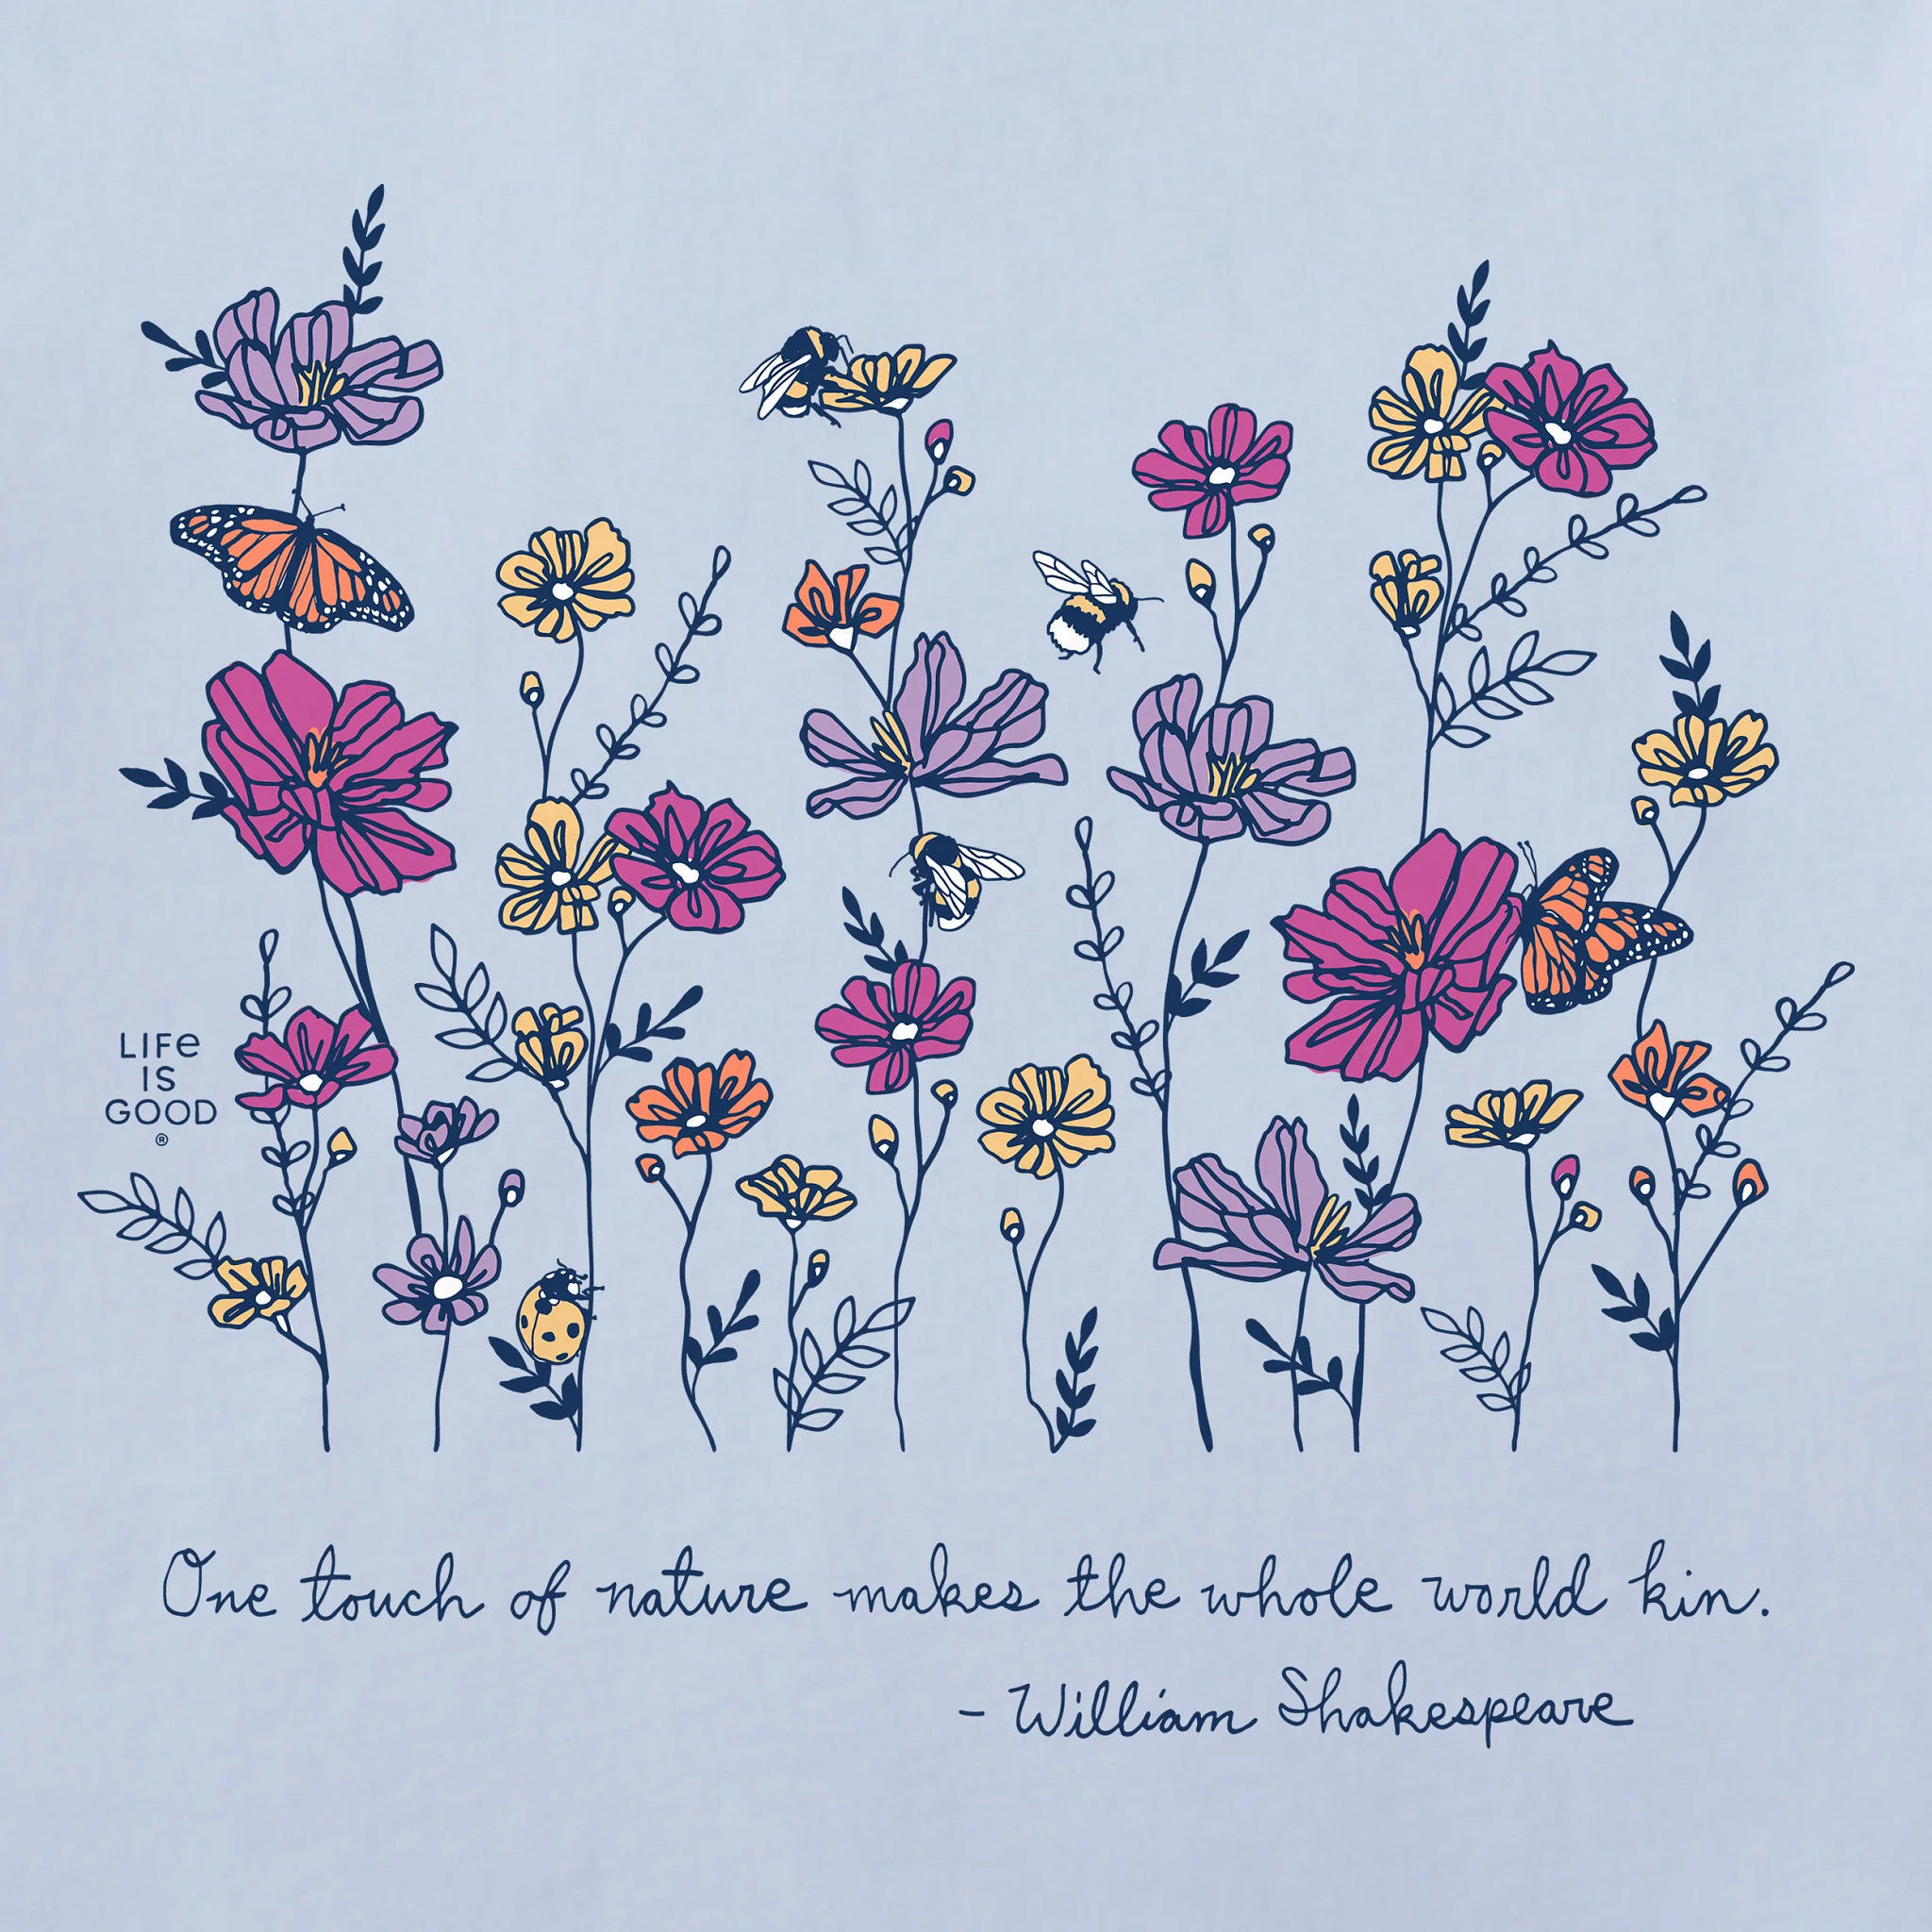 LIFe
IS
GOOD
®
One touch of nature makes the whole world kin.
- William Shakespeare